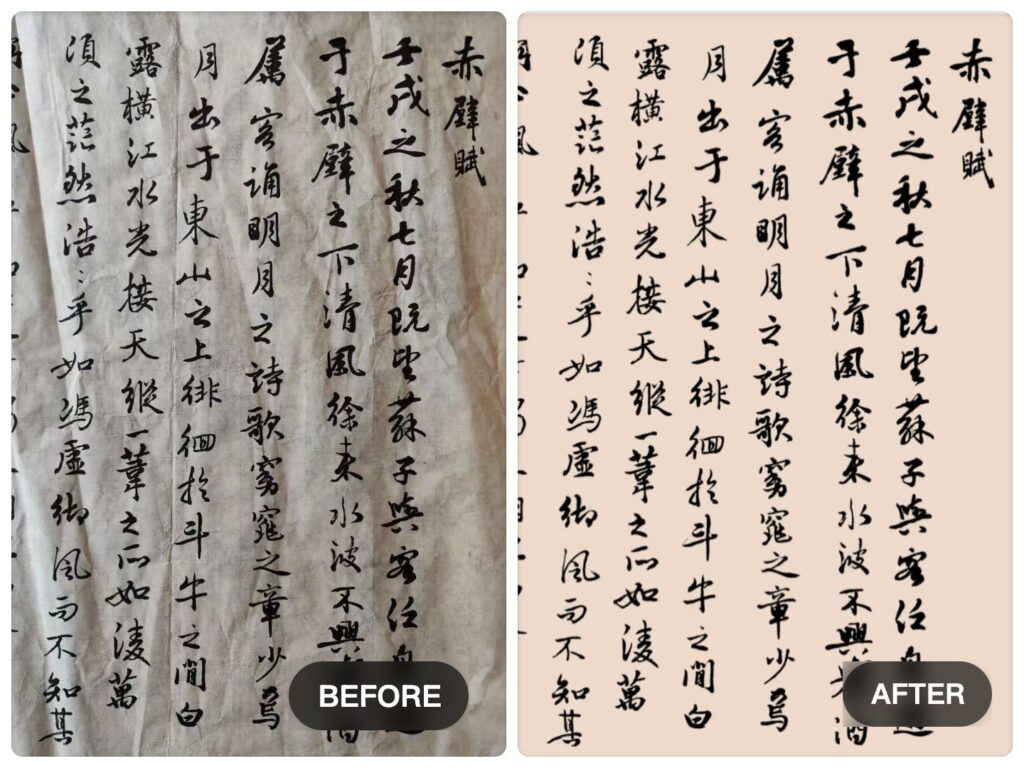 赤壁賦
壬戌之秋七月既望蘇子與客
于赤壁之下清風徐來水波不興
屬客誦明月之詩歌窈窕之章少焉
月出于東山之上徘徊於斗牛之間白
露橫江水光接天縱一葦之所如淩萬
頃之茫然浩〻乎如馮虛御風而不知其
BEFORE
赤壁賦
壬戌之秋七月既望蘇子與客
于赤壁之下清風徐來水波不興
屬客誦明月之詩歌窈窕之章少焉
月出于東山之上徘徊於斗牛之間白
露橫江水光接天縱一葦之所如淩萬
頃之茫然浩〻乎如馮虛御風而不知其
AFTER